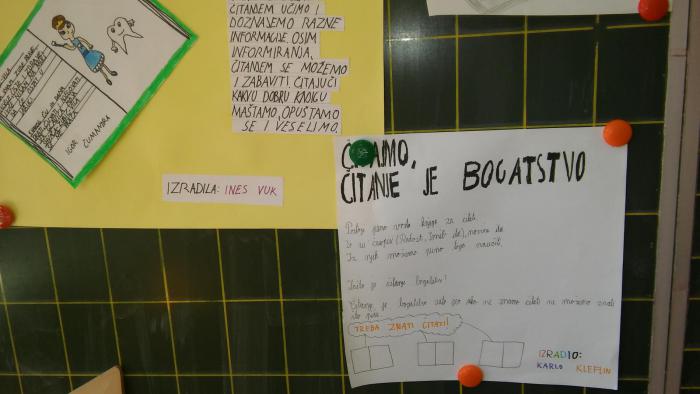 ČITANJEM UČIMO I
DOZNAJEMO RAZNE
INFORMACIJE. OSIM
INFORMIRANJA,
ČITANJEM SE MOŽEMO
I ZABAVITI. ČITAJUĆI
KAKVU DOBRU KNJIGU
MAŠTAMO, OPUŠTAMO
SE I VESELIMO.
IZRADILA: INES VUK
IGOR ČUMANDRA
ČITAJMO,
ČITANJE JE BOGATSTVO
Postoji puno vrsta knjiga za čitati.
To su časopisi (Radost, Smib itd.), novine itd.
Iz njih možemo puno toga naučiti.
Zašto je čitanje bogatstvo?
Čitanje je bogatstvo zato jer ako ne znamo čitati ne možemo znati
što piše.
TREBA ZNATI ČITATI!
IZRADIO:
KARLO KLEFLIN